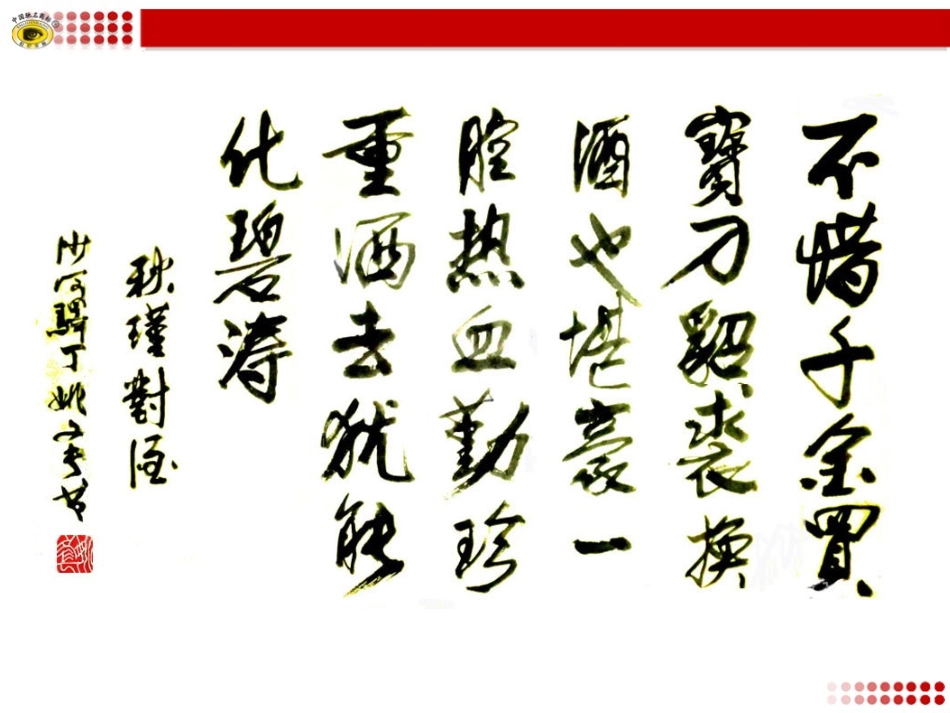 不惜千金買
寶刀貂裘換
酒也堪豪一
腔热血勤珍
重洒去犹能
化碧涛
秋瑾對酒